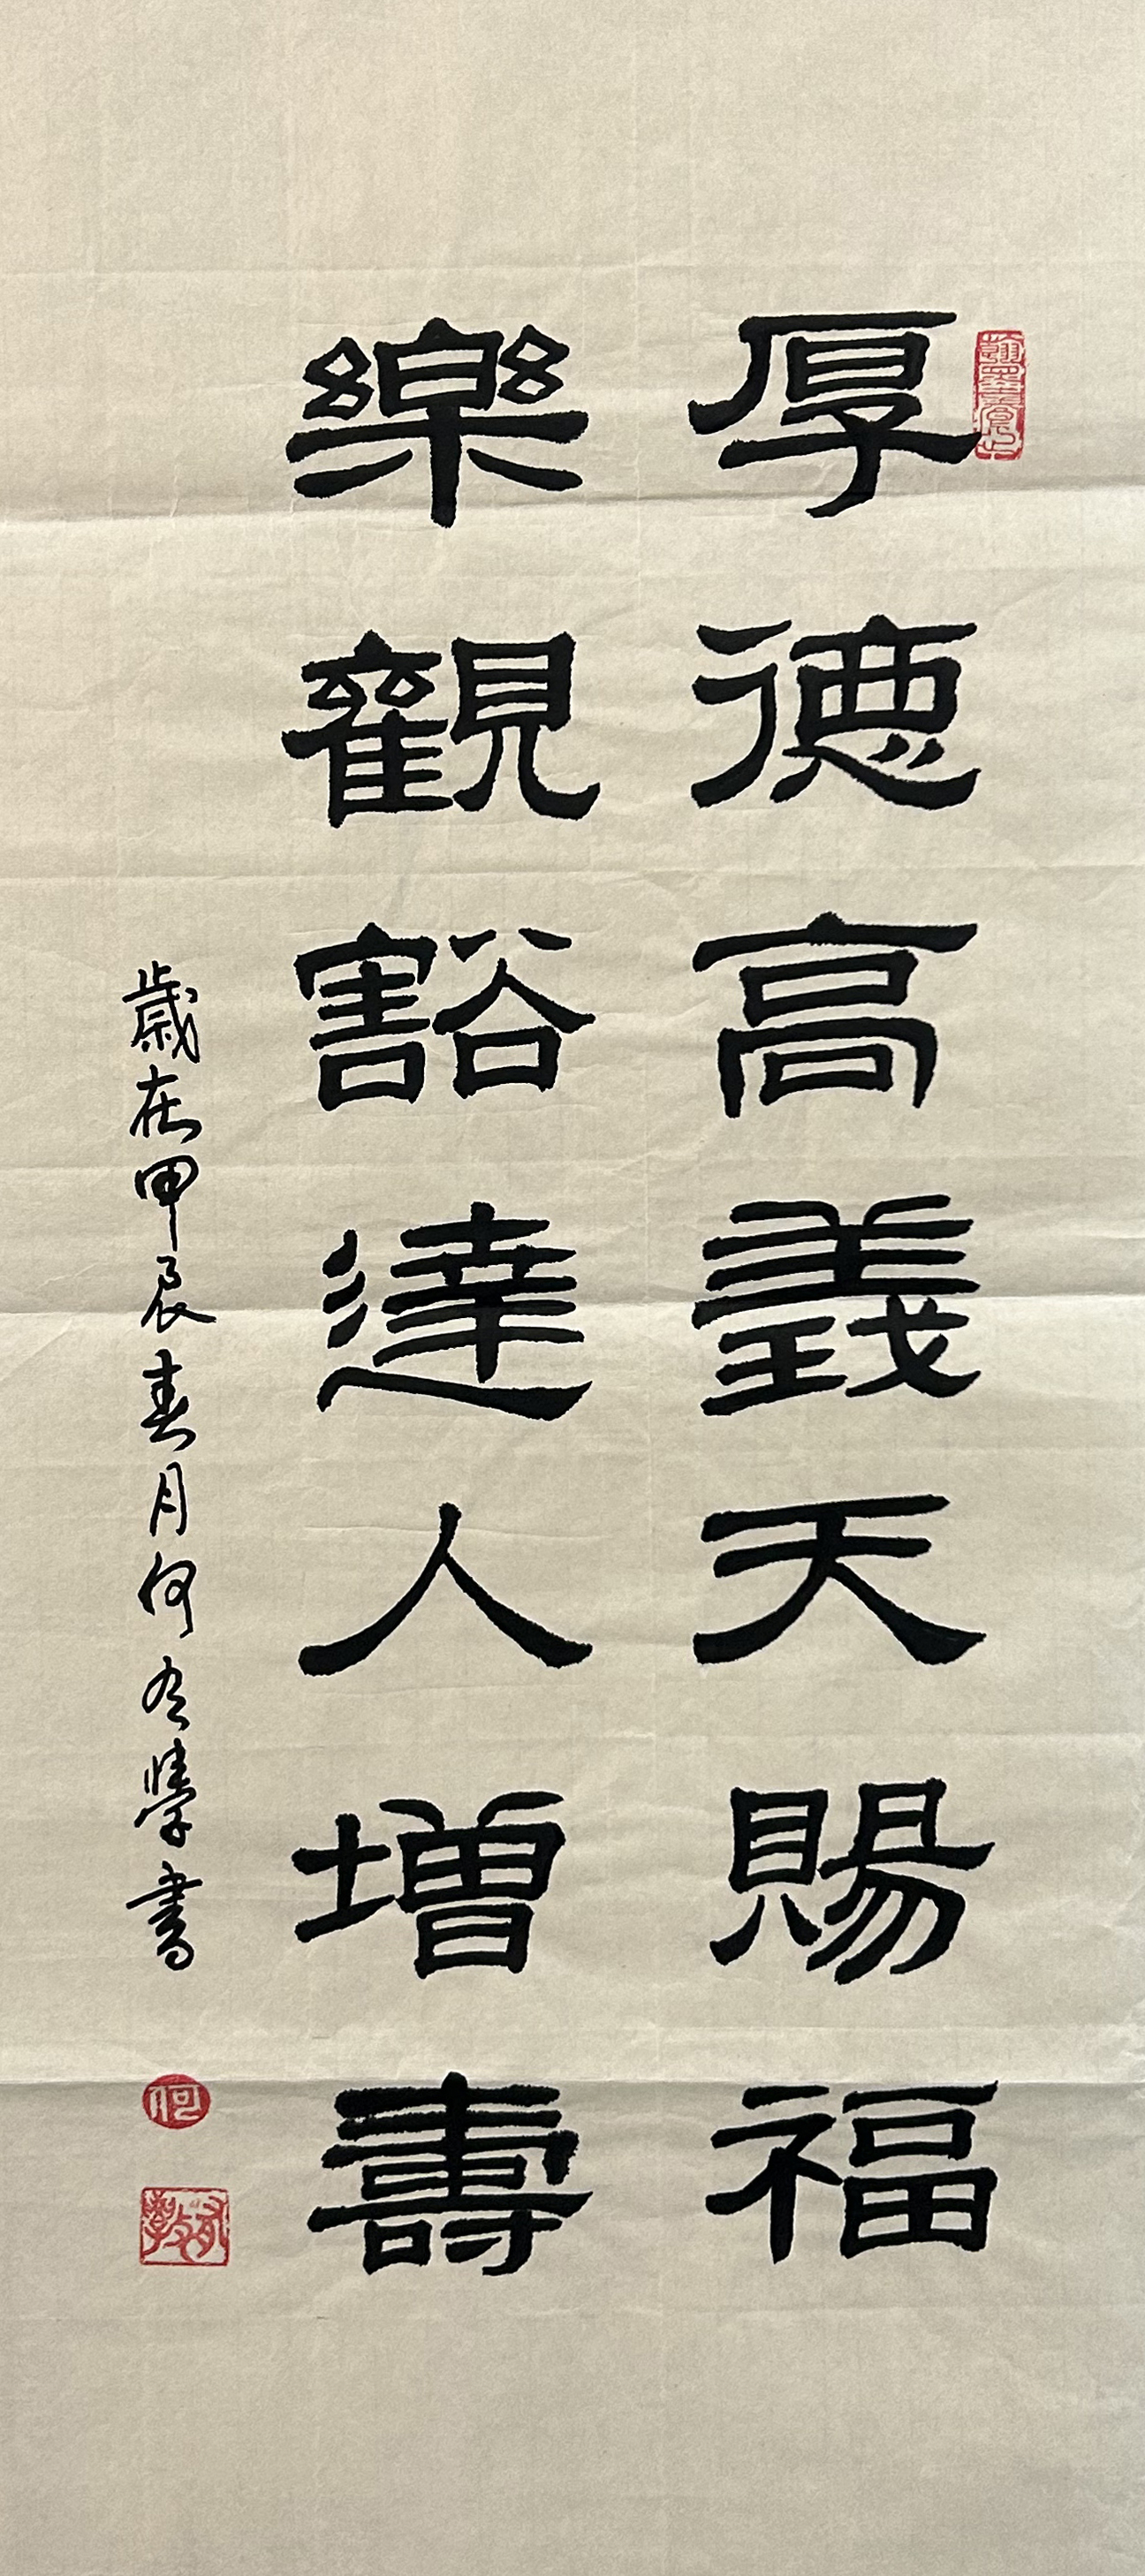 厚德高義天賜福
樂觀豁達人增壽
歲在甲辰春月何有學書
何